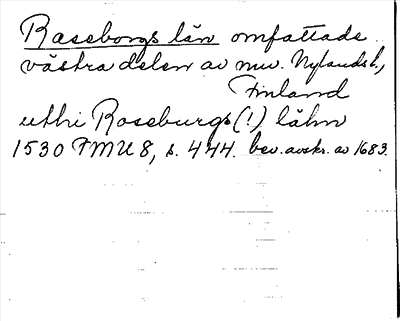 Raseborgs län omfattade
västra delen av nuv. Nylands l.,
Finland
uthi Roseburgs (!) lähn
1530 FMU 8, s. 444. bev. avskr. av 1683.